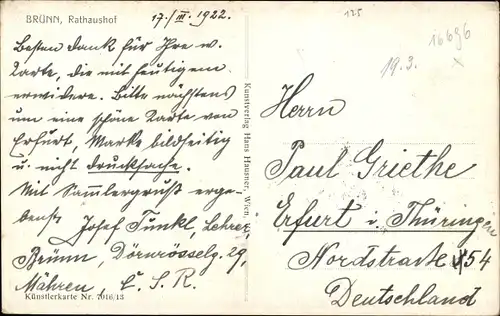 BRÜNN, Rathaushof
17./III. 1922.
Besten Dank für Ihre w.
Karte, die mit heutigem
erwidere. Bitte nächstens
um eine schöne Karte von
Erfurt, Marke bildseitig
u. nicht Drucksache.
Mit Sammlergruß erge-
benst Josef Tunkl, Lehrer,
Brünn, Dörnrösselg. 29,
Mähren, Č. S. R.
Künstlerkarte Nr. 7016/13
Kunstverlag Hans Hausner, Wien.
125
16696
19.3.
Herrn
Paul Griethe
Erfurt i. Thüringen
Nordstraße 54
Deutschland